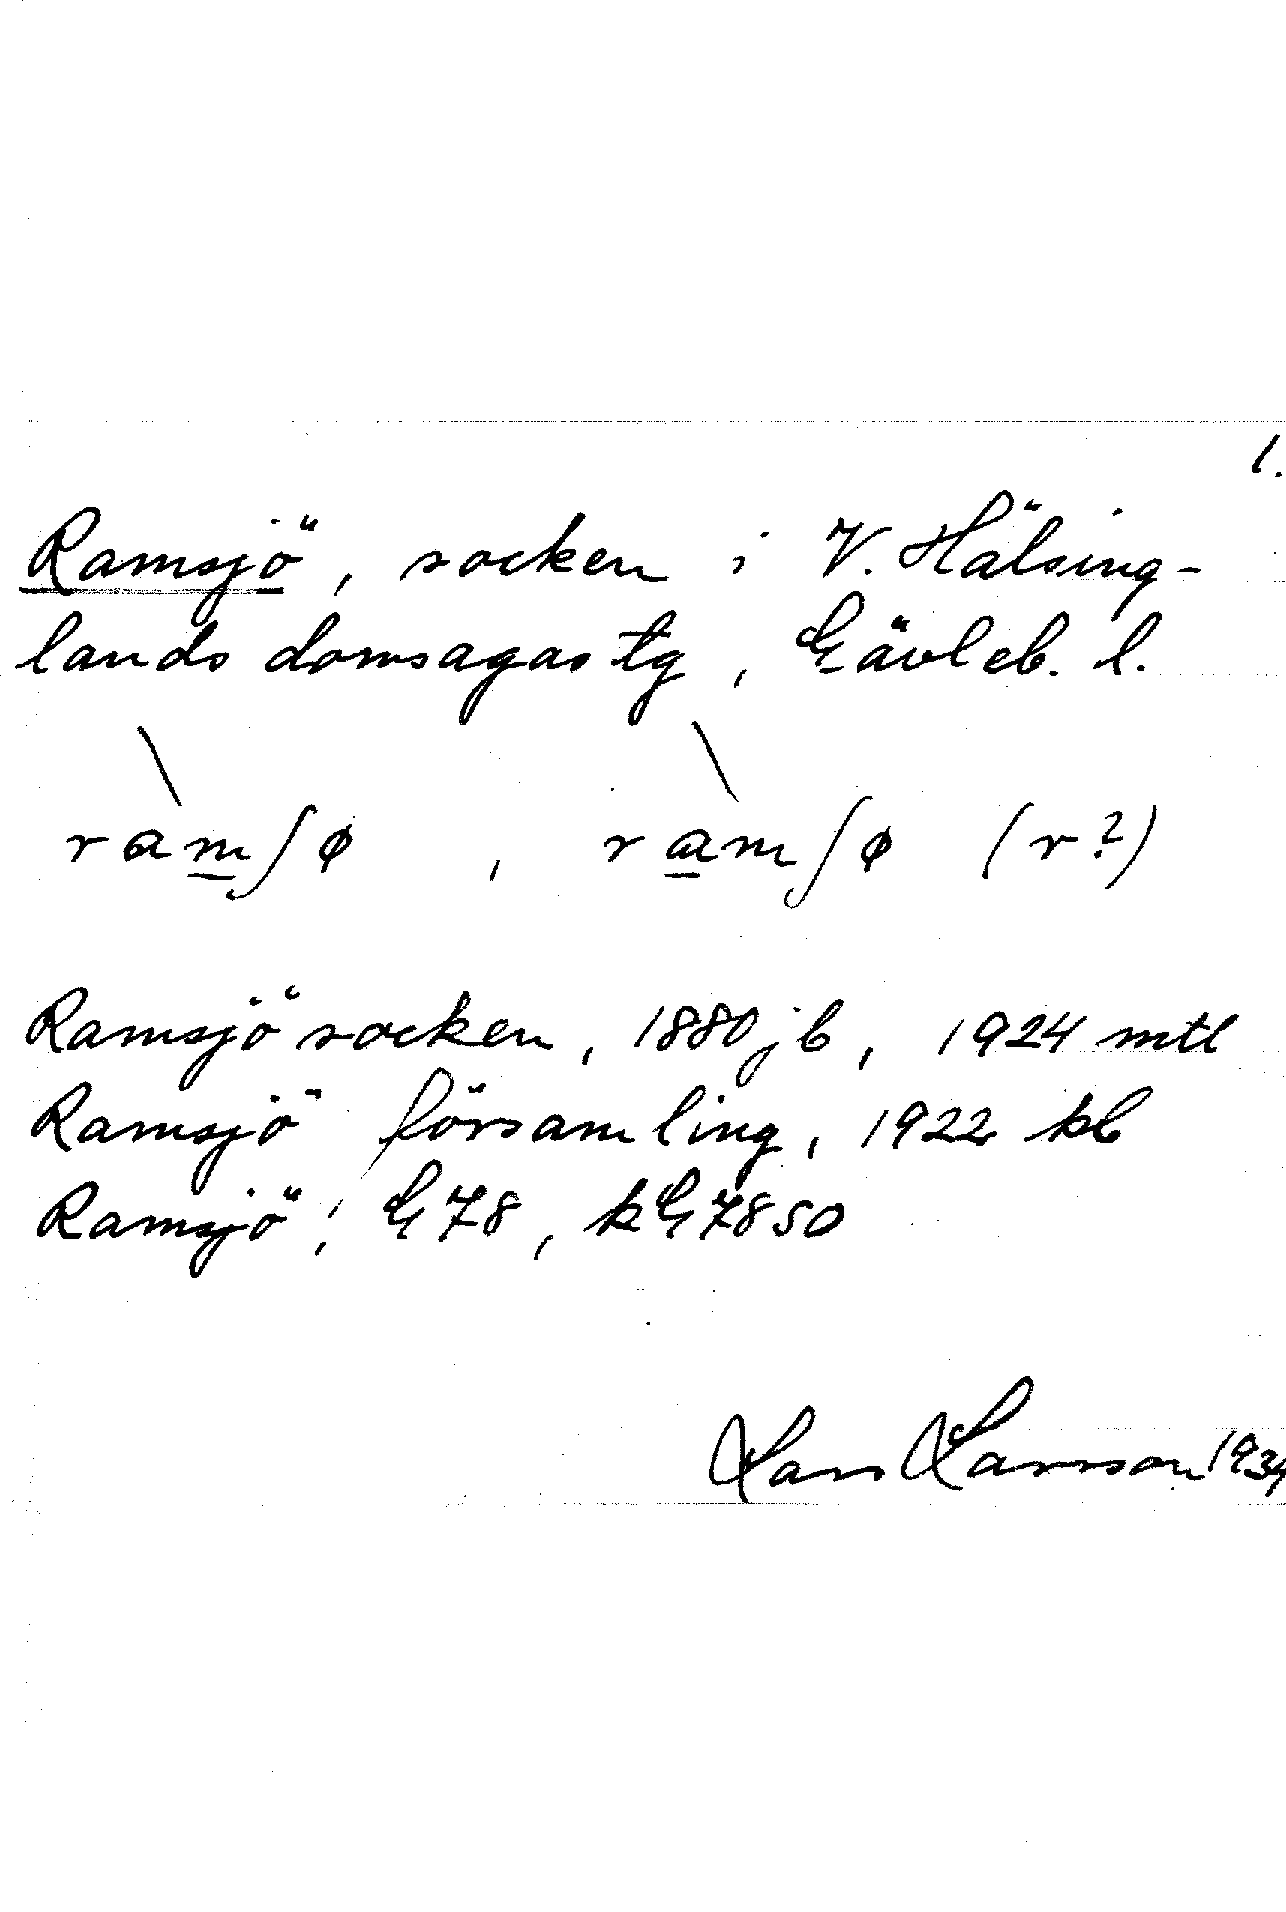 1.
Ramsjö, socken i V. Hälsing-
lands domsagas tg, Gävleb. l.
ràm̲ʃø, rà̲mʃø (r?)
Ramsjö socken, 1880 jb, 1924 mtl
Ramsjö församling, 1922 kb
Ramsjö, G 78, kG7850
Lars Larsson 1934